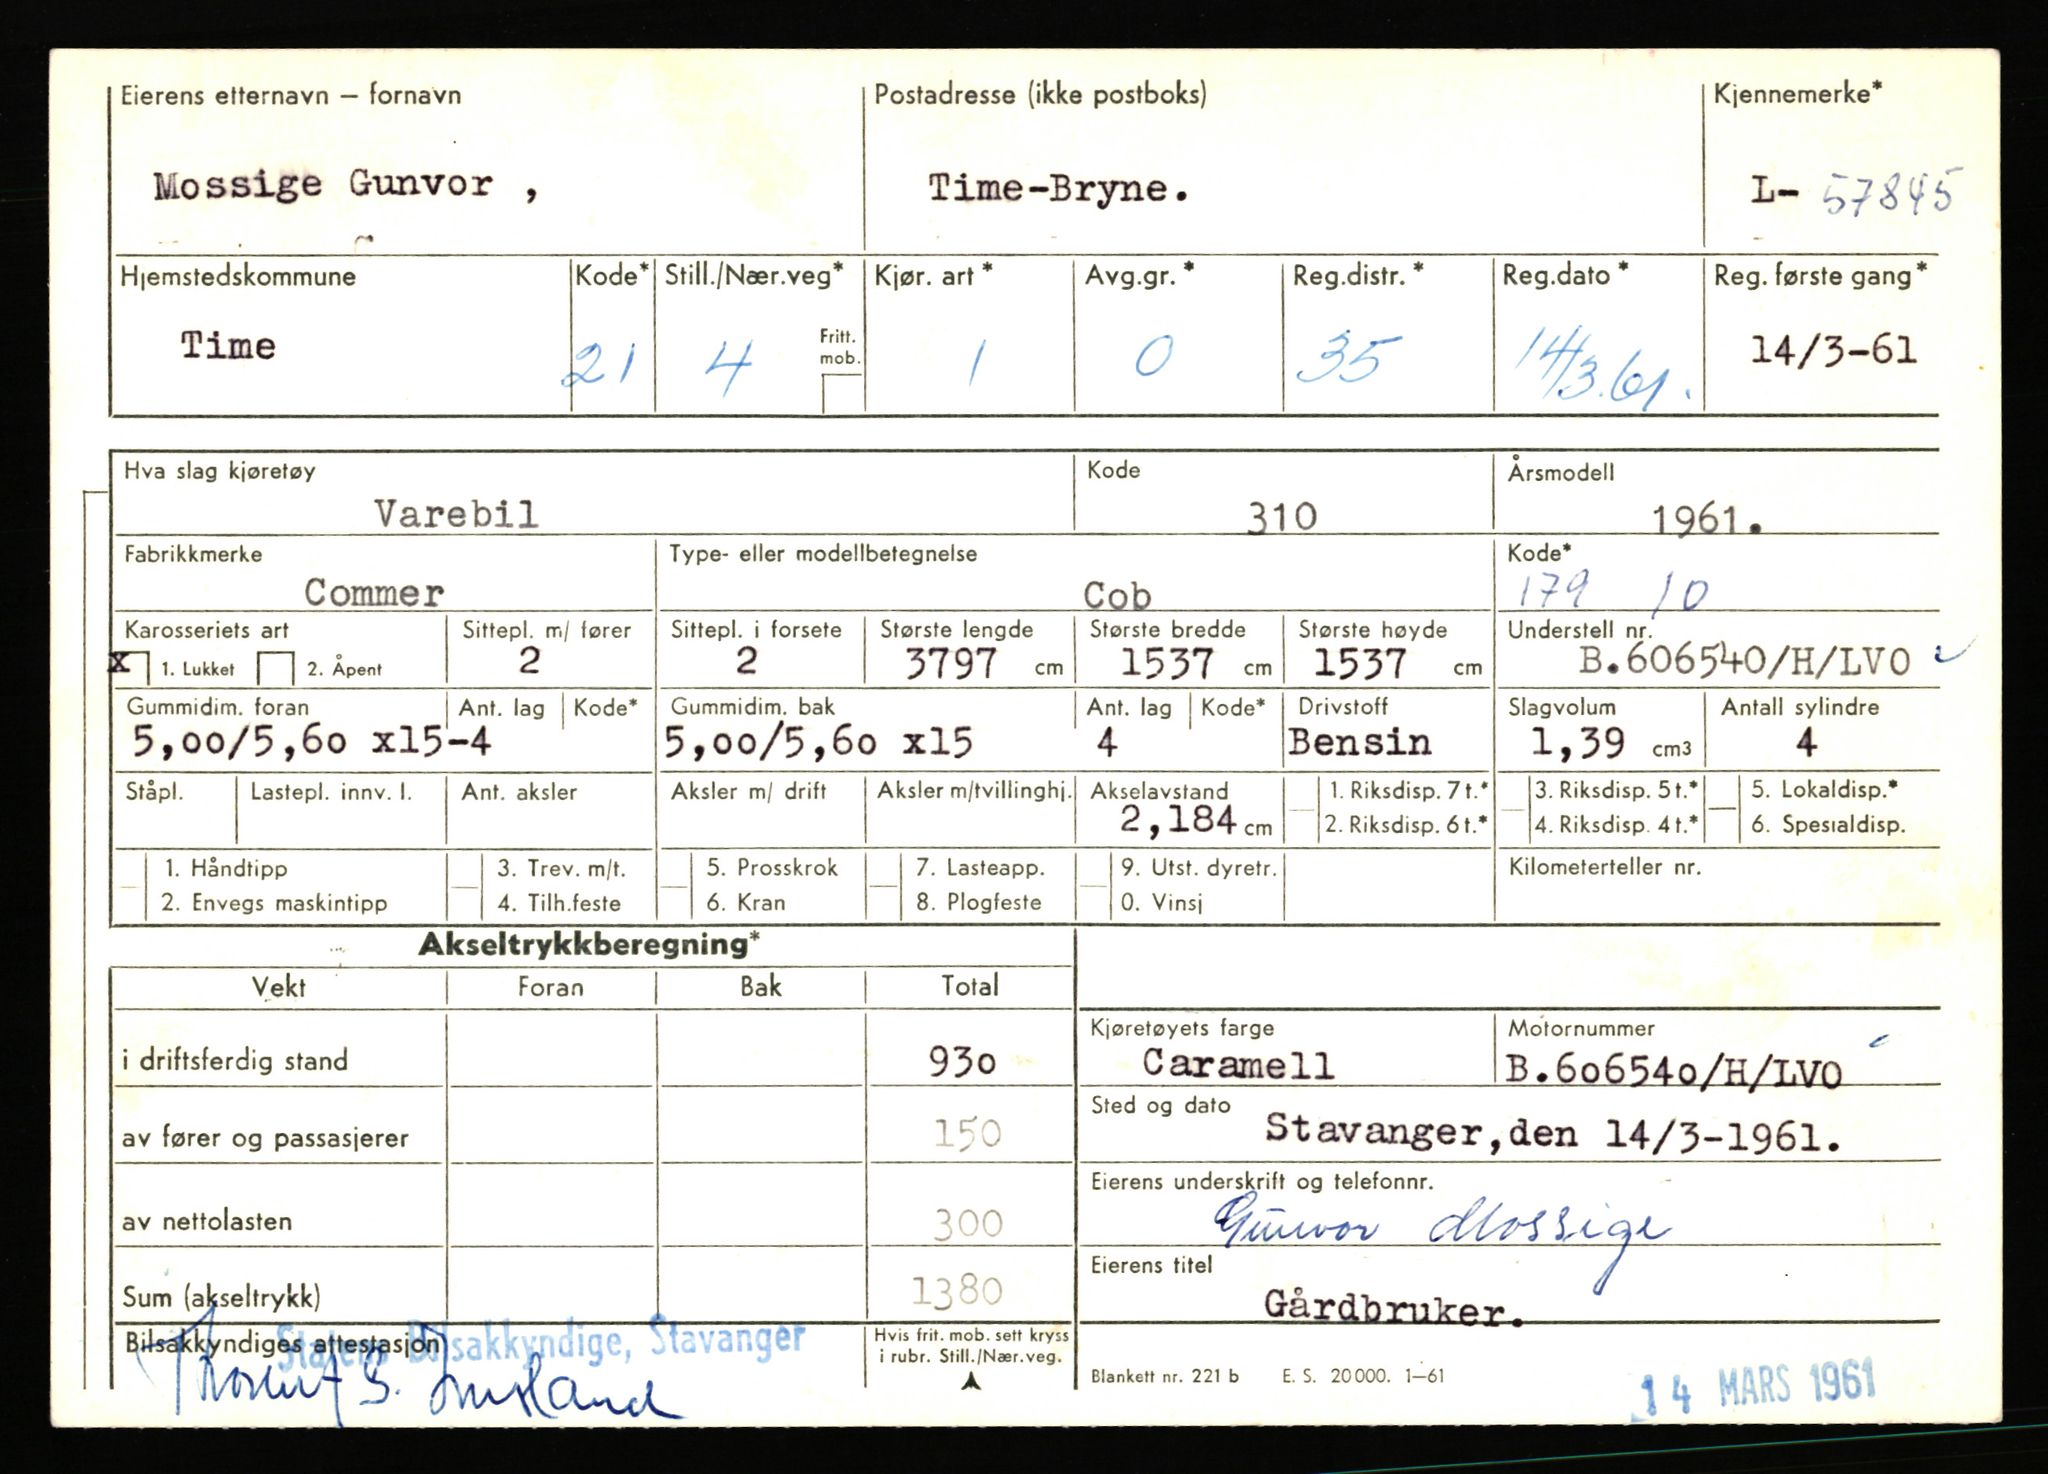 Eierens etternavn – fornavn Postadresse (ikke postboks) Kjennemerke*
Mossige Gunvor , Time-Bryne. L- 57845
Hjemstedskommune Kode* Still./Nær.veg* Kjør. art * Avg.gr. * Reg.distr. * Reg.dato * Reg. første gang*
Time 21 4 Fritt. mob. 1 0 35 14/3.61. 14/3-61
Hva slag kjøretøy Kode Årsmodell
Varebil 310 1961.
Fabrikkmerke Type- eller modellbetegnelse Kode*
Commer Cob 179 10
Karosseriets art Sittepl. m/ fører Sittepl. i forsete Største lengde Største bredde Største høyde Understell nr.
x 1. Lukket 2. Åpent 2 2 3797 cm 1537 cm 1537 cm B.606540/H/LVO
Gummidim. foran Ant. lag Kode* Gummidim. bak Ant. lag Kode* Drivstoff Slagvolum Antall sylindre
5,00/5,60 x15-4 5,00/5,60 x15 4 Bensin 1,39 cm3 4
Ståpl. Lastepl. innv. l. Ant. aksler Aksler m/ drift Aksler m/tvillinghj. Akselavstand 1. Riksdisp. 7 t.* 3. Riksdisp. 5 t.* 5. Lokaldisp.*
2,184 cm 2. Riksdisp. 6 t.* 4. Riksdisp. 4 t.* 6. Spesialdisp.
1. Håndtipp 3. Trev. m/t. 5. Prosskrok 7. Lasteapp. 9. Utst. dyretr. Kilometerteller nr.
2. Envegs maskintipp 4. Tilh.feste 6. Kran 8. Plogfeste 0. Vinsj
Akseltrykkberegning*
Vekt Foran Bak Total
i driftsferdig stand 930
av fører og passasjerer 150
av nettolasten 300
Sum (akseltrykk) 1380
Kjøretøyets farge Motornummer
Caramell B.606540/H/LVO
Sted og dato
Stavanger,den 14/3-1961.
Eierens underskrift og telefonnr.
Gunvor Mossige
Eierens titel
Gårdbruker.
Bilsakkyndiges attestasjon Hvis frit. mob. sett kryss
i rubr. Still./Nær.veg.
Statens Bilsakkyndige, Stavanger
Blankett nr. 221 b E. S. 20000. 1–61
14 MARS 1961